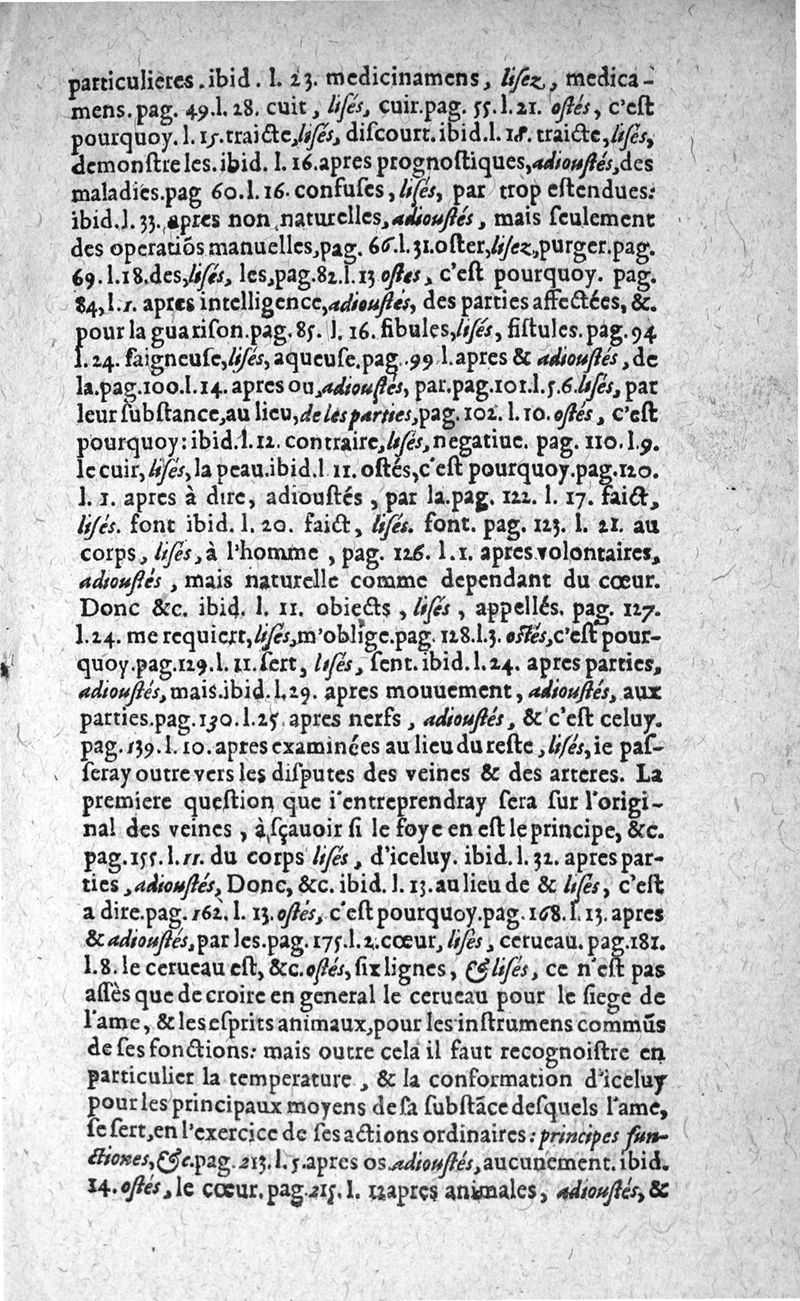 particulieres.ibid. l. 23. medicinamens, lisez, medica-
mens.pag. 49.l.28. cuit, lisés, cuir.pag. 55.l.21. ostés, c'est
pourquoy.l.15.traicte,lisés, discourt.ibid.l.18.traicte,lisés,
demonstre les.ibid. l.16.apres prognostiques,adioustés,des
maladies.pag 60.l.16.confuses,lisés, par trop estendues:
ibid.l.33. apres non naturelles,adioustés, mais seulement
des operatiōs manuelles,pag. 66.l.31.oster,lisez,purger.pag.
69.l.18.des,lisés, les,pag.82.l.13 ostes, c'est pourquoy. pag.
84,l.1. apres intelligence,adioustés, des parties affectées, &.
pour la guarison.pag.85. l.16. fibules,lisés, fistules.pag.94
l.24. saigneuse,lisés,aqueuse.pag.99 l.apres & adioustés,de
la.pag.100.l.14. apres ou,adioustés, par.pag.101.l.5.6.lisés, par
leur substance,au lieu,de les parties,pag. 102. l.10. ostés, c'est
pourquoy:ibid.l.12. contraire,lisés,negatiue. pag. 110.l.9.
le cuir,lisés,la peau.ibid.l 11. ostés,c'est pourquoy.pag.120.
l. 1. apres à dire, adioustés, par la.pag. 122. l. 17. faict,
lisés. font ibid. l. 20. faict, lisés. font. pag. 123. l. 21. au
corps, lisés,à l'homme, pag. 126. l.1. apres volontaires,
adioustés, mais naturelle comme dependant du cœur.
Donc &c. ibid. l. 11. obiects, lisés, appellés. pag. 127.
l.24. me requiert,lisés,m'oblige.pag.128.l.3. ostés,c'est pour-
quoy.pag.129.l.11.sert, lisés, sent.ibid.l.24. apres parties,
adioustés,mais.ibid.l.29. apres mouuement, adioustés, aux
parties.pag.130.l.25 apres nerfs, adioustés, & c'est celuy.
pag.139.l.10.apres examinées au lieu du reste,lisés,ie pas-
seray outre vers les disputes des veines & des arteres. La
premiere question que i'entreprendray sera sur l'origi-
nal des veines, à sçauoir si le foye en est le principe, &c.
pag.155.l.11. du corps lisés, d'iceluy. ibid.l.32. apres par-
ties,adioustés, Donc, &c. ibid. l.13.au lieu de & lisés, c'est
a dire.pag.162. l. 13.ostés, c'est pourquoy.pag.168.l.13.apres
& adioustés,par les.pag.175.l.2.cœur, lisés, cerueau.pag.181.
l.8. le cerueau est, &c.ostés,six lignes, & lisés, ce n'est pas
assès que de croire en general le cerueau pour le siege de
l'ame, & les esprits animaux,pour les instrumens commūs
de ses fonctions: mais outre cela il faut recognoistre en
particulier la temperature, & la conformation d'iceluy
pour les principaux moyens de sa substāce desquels l'ame,
se sert,en l'exercice de ses actions ordinaires:principes fun-
ctiones,&c.pag.213.l.5.apres os.adioustés,aucunement.ibid.
14.ostés,le cœur.pag.215.l. 12apres animales, adioustés,&